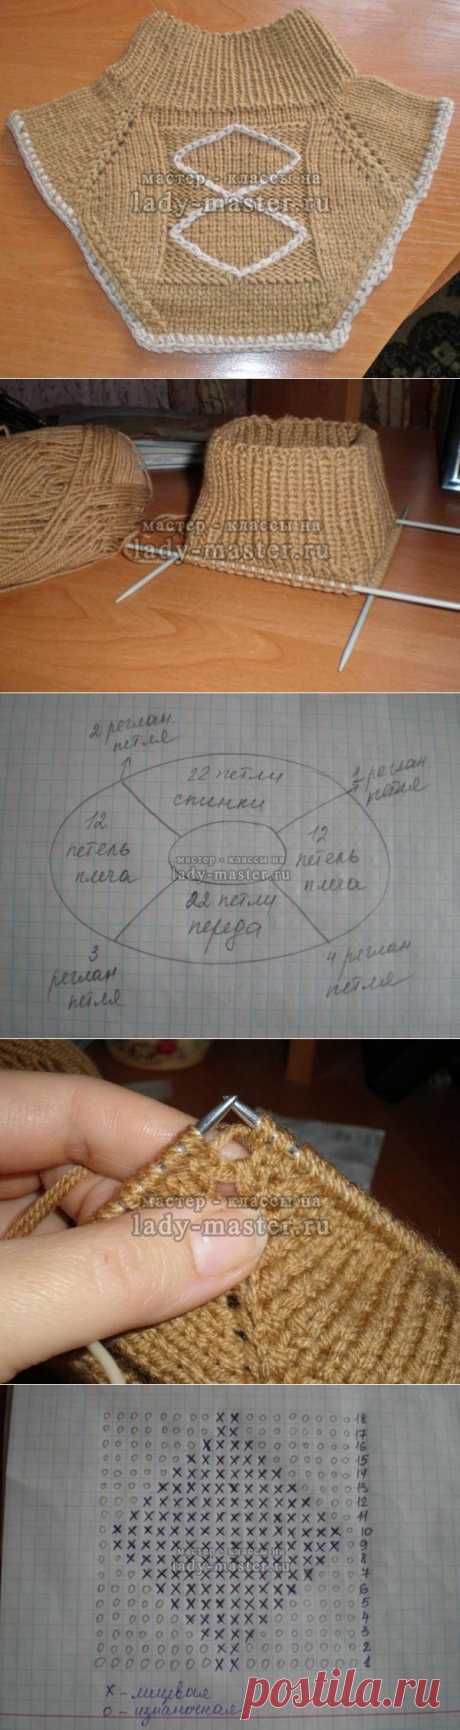 мастер - классы на
lady-master.ru
мастер - классы на
lady-master.ru
2 реглан
петля
22 петли
спинки
1 реглан
петля
12
петель
плеча
мастер - классы на
lady-master.ru
12
петель
плеча
22 петли
переда
3
реглан
петля
4 реглан
петля
мастер - классы на
lady-master.ru
18
17
16
15
14
13
12
11
10
9
8
мастер - классы на
7
lady-master.ru
6
5
4
3
2
1
x - лицевая
о - изнаночная
postila.ru